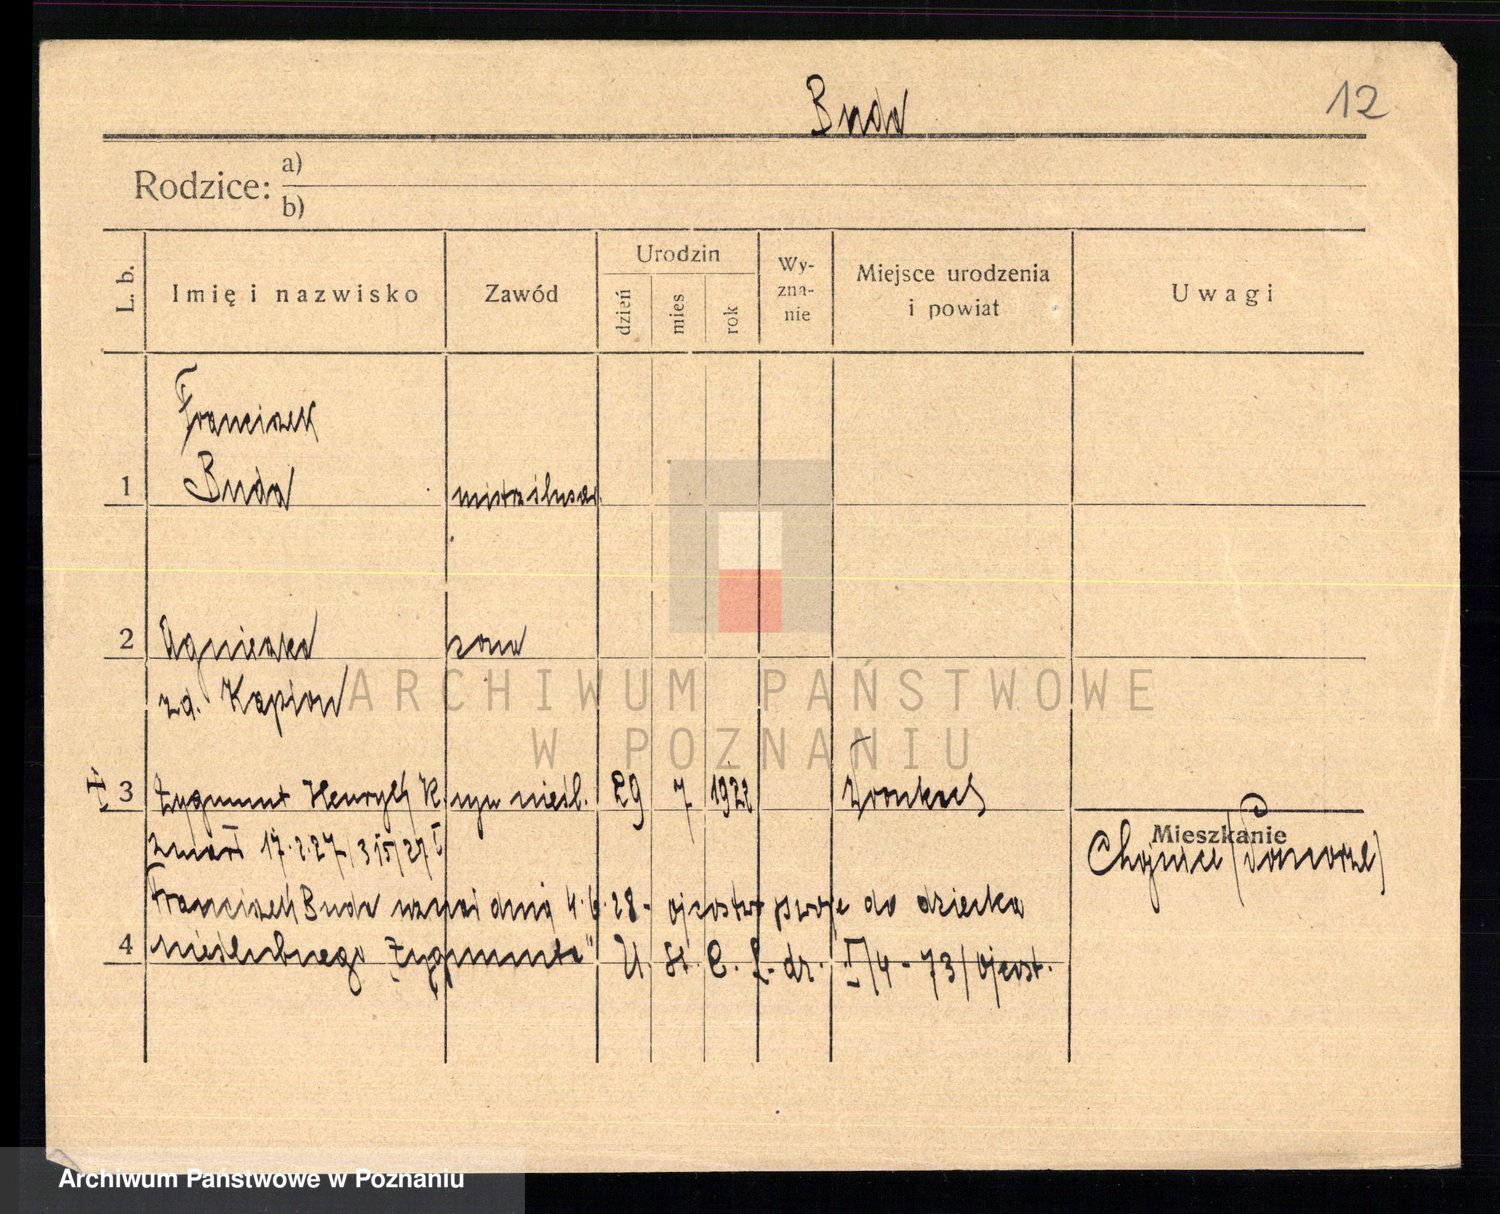 Buda
12
Rodzice: a)
b)
L. b.
Imię i nazwisko
Zawód
Urodzin
dzień
mies
rok
Wy-
zna-
nie
Miejsce urodzenia
i powiat
Uwagi
Franciszek
1 Buda mistrz ślusar.
2 Agnieszka żona
zd. Kapion
3 Zygmunt Henryk K. syn nieśl. 29 7 1922 Wronkach
zmarł 17.2.27/315/27 I
Mieszkanie
Chojnice (Pomorze)
Franciszek Buda uznał dnia 4.6.28 - ojcostwo swoje do dziecka
4 nieślubnego Zygmunta" U. St. C. L. dz. I/4-73/ojcost.
ARCHIWUM PAŃSTWOWE
W POZNANIU
Archiwum Państwowe w Poznaniu